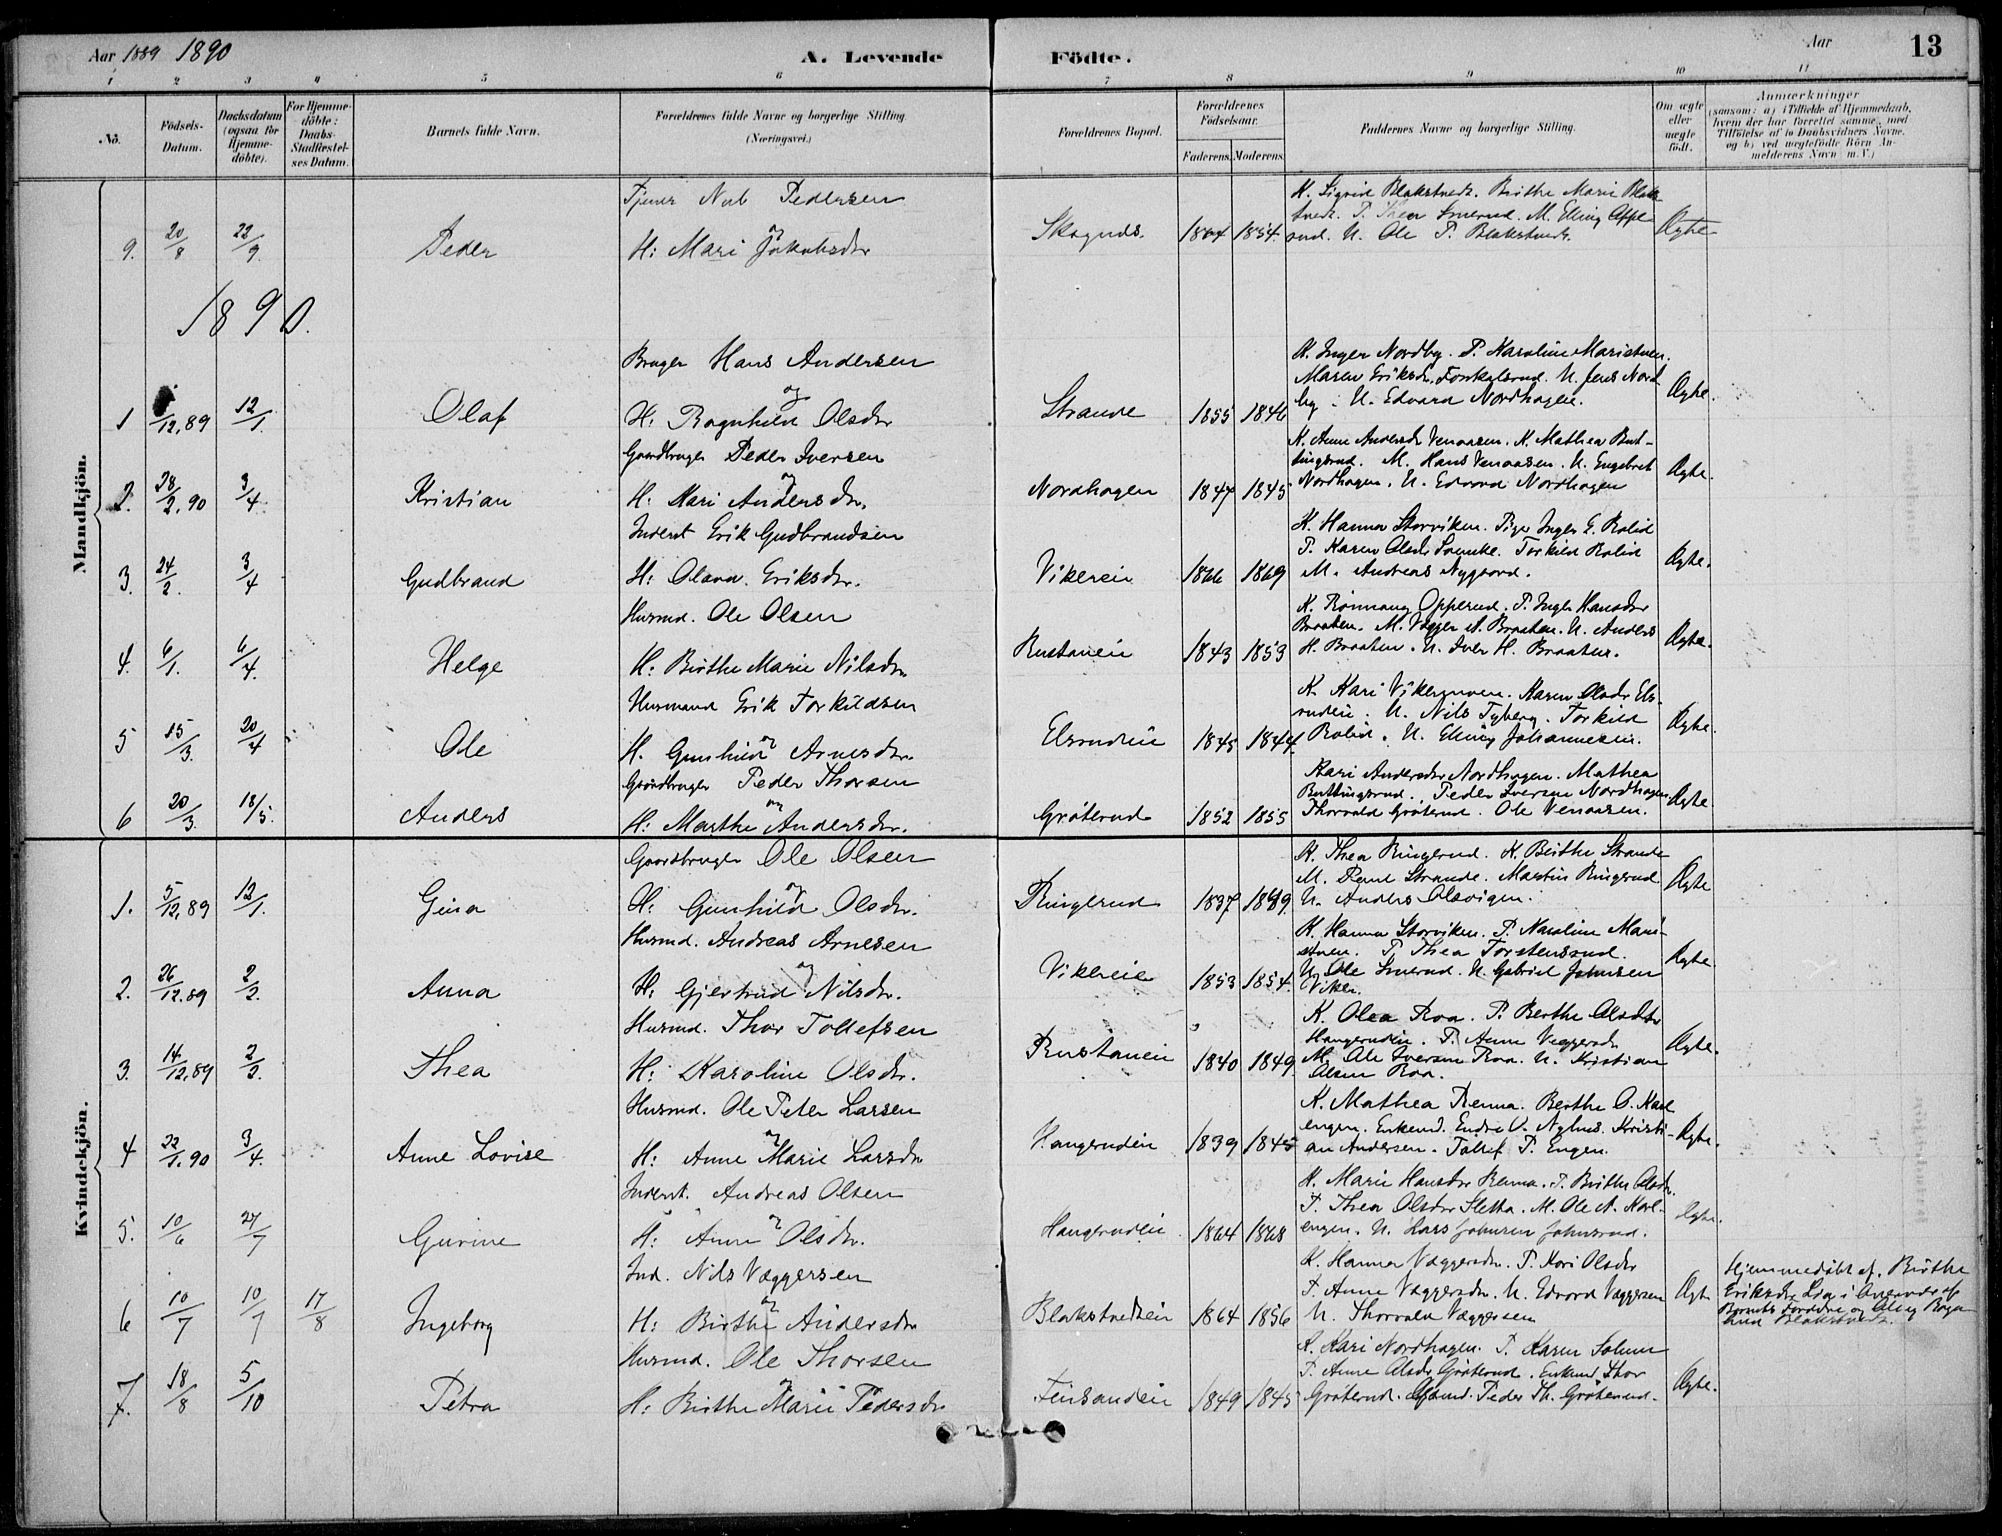 Aar 1889 1890
A. Levende Födte.
Aar
13
1 2 3 4 5 6 7 8 9 10 11
No.
Födsels-Datum.
Daabsdatum (ogsaa for Hjemmedöbte).
For Hjemmedöbte: Daabs-Stadfæstelses Datum.
Barnets fulde Navn.
Forældrenes fulde Navne og borgerlige Stilling (Næringsvei.)
Forældrenes Bopæl.
Forældrenes Födselsaar.
Faderens. Moderens.
Faddernes Navne og borgerlige Stilling.
Om ægte eller uægte födt.
Anmærkninger
(saasom: a) i Tilfælde af Hjemmedaab, hvem der har forrettet samme, med Tilföielse af to Daabsvidners Navne, og b) ved uægtefödte Börn Anmelderens Navn m. V.)
Mandkjön.
9. 20/8 22/9 Peder
Pedersen
og
H: Mari Jakobsdr
Skognds. 1864 1854
K. Sigrid Blakstvedt. Birthe Marie Blak
stvedt. P. Thea Smerud. M. Elling Oppe
rud. U. Ole P. Blakstvedt.
Ægte
1890.
1 /12,89 12/1. Olaf
Bruger Hans Andersen
og
H: Ragnhild Olsdr
Strande 1855 1846
K. Inger Nordby. P. Karoline Maristuen.
Maren Eriksdr. U. Jens Nord
by. U. Edvard Nordhagen.
Ægte.
2. 28/2,90 3/4 Kristian
Gaardbruger Peder Iversen
og
H: Mari Andersdr.
Nordhagen 1847 1845
K. Anne Andersdr Venaasen. K. Mathea But-
tingsrud. M. Hans Venaasen. U. Engebret
Nordhagen. U. Edvard Nordhagen
Ægte.
3. 24/2. 3/4 Gudbrand
Inderst Erik Gudbrandsen
H: Olava Eriksdr.
Vikereie 1866 1869
K. Hanna Storviken. Pige Inger E. Rolid
P. Karen Olsdr. Torkild Rolid
M. Andreas Nygaard.
Ægte.
4. 6/1. 6/4. Helge
Husmd. Ole Olsen
H: Birthe Marie Nilsdr.
Rustaneie 1843 1853
K. Rønnaug Opperud. P. Inger Hansdr
Braaten. M. A. Braaten. U. Anders
H. Braaten. U. Iver H. Braaten.
Ægte.
5 15/3. 20/4 Ole
Husmand Erik Torkildsen
og
H. Gunhild Arnesdr.
Elsrudeie 1845 1844.
K. Kari Vikermoen. Maren Olsdr Els-
rudeie. U. Nils Tyberg. Torkild
Rolid. U. Elling Johannesen.
Ægte.
6 20/3. 18/5. Anders
Gaardbruger Peder Thorsen
og
H: Marthe Andersdr.
Gröterud 1852 1855
Kari Andersdr Nordhagen. Mathea
Buttingsrud. Peder Iversen Nordhagen
Thorvald Gröterud. Ole Venaasen.
Ægte.
Kvindekjön.
1. 5/12,89 12/1. Gina
Gaardbruger Ole Olsen
og
H: Gunhild Olsdr.
Ringerud 1837 1849
K. Thea Ringerud. K. Birthe Strande
M. Paul Strande. Martin Ringerud
U. Anders Olavigen.
Ægte
2. 26/12,89 2/2. Anna
Husmd. Andreas Arnesen
og
H: Gjertrud Nilsdr.
Vikereie 1853 1854.
K. Hanna Storviken. P. Karoline Mari-
stuen. P Thea Torstensrud.
U. Ole Smerud. U. Gabriel Johnsen
Viker.
Ægte.
3. 14/12,89 2/2. Thea
Husmd. Thor Tollefsen
H: Karoline Olsdr.
Rustaneie 1840 1849
K. Olea Roa. P. Berthe Olsdtr
Haugerudeie. P. Anne Væggersdr.
M. Ole Iversen Roa. U. Kristian
Olsen Roa.
Ægte.
4 22/1,90 3/4. Anne Lovise
Husmd. Ole Peter Larsen
og
H: Anne Marie Larsdr
Haugerudeie 1839 1845
K. Mathea Renna. Berthe O. Karl
engen. Enkemd. Endre O. Nyhus. Kristi-
an Andersen. Tollef P. Engen.
Ægte.
5. 10/6 27/7 Gurine
Inderst. Andreas Olsen
og
H: Anne Olsdr.
Haugerudeie 1864 1868
K. Marie Hansdr Renna. P. Birthe Olsdr.
P. Thea Olsdr Sletta. M. Ole A. Karl-
engen. U. Lars Johnsen Johnsrud.
Ægte.
6 10/7 10/7 17/8 Ingeborg
Ind. Nils Væggersen
og
H: Birthe Andersdr
Blakstvedteie 1864 1856
K. Hanna Væggersdr. P. Kari Olsdr
P. Anne Væggersdr. U. Edvard Væggersen
U. Thorvald Væggersen
Ægte
Hjemmedöbt af Birthe
Eriksdr Lia i Overvær af
Barnets Forældre og Ragn
hild Blakstvedt.
7. 18/8 5/10 Petra
Husmd. Ole Thorsen
og
H: Birthe Marie Pedersdr
Finsandeie 1849 1845
K. Kari Nordhagen. P. Karen Solum
P. Anne Olsdr Gröterud. Enkemd. Thor
Gröterud. Peder Th. Gröterud.
Ægte.